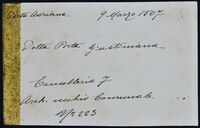 Porta Adriana 9 Marzo 1807
Della Porta Giustiniana
Cancelleria 7
Arch. vecchio Comunale
Nº 223